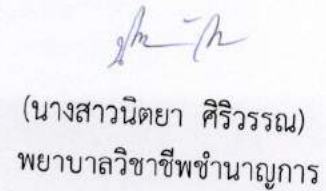 (นางสาวนิตยา ศิริวรรณ)
พยาบาลวิชาชีพชำนาญการ